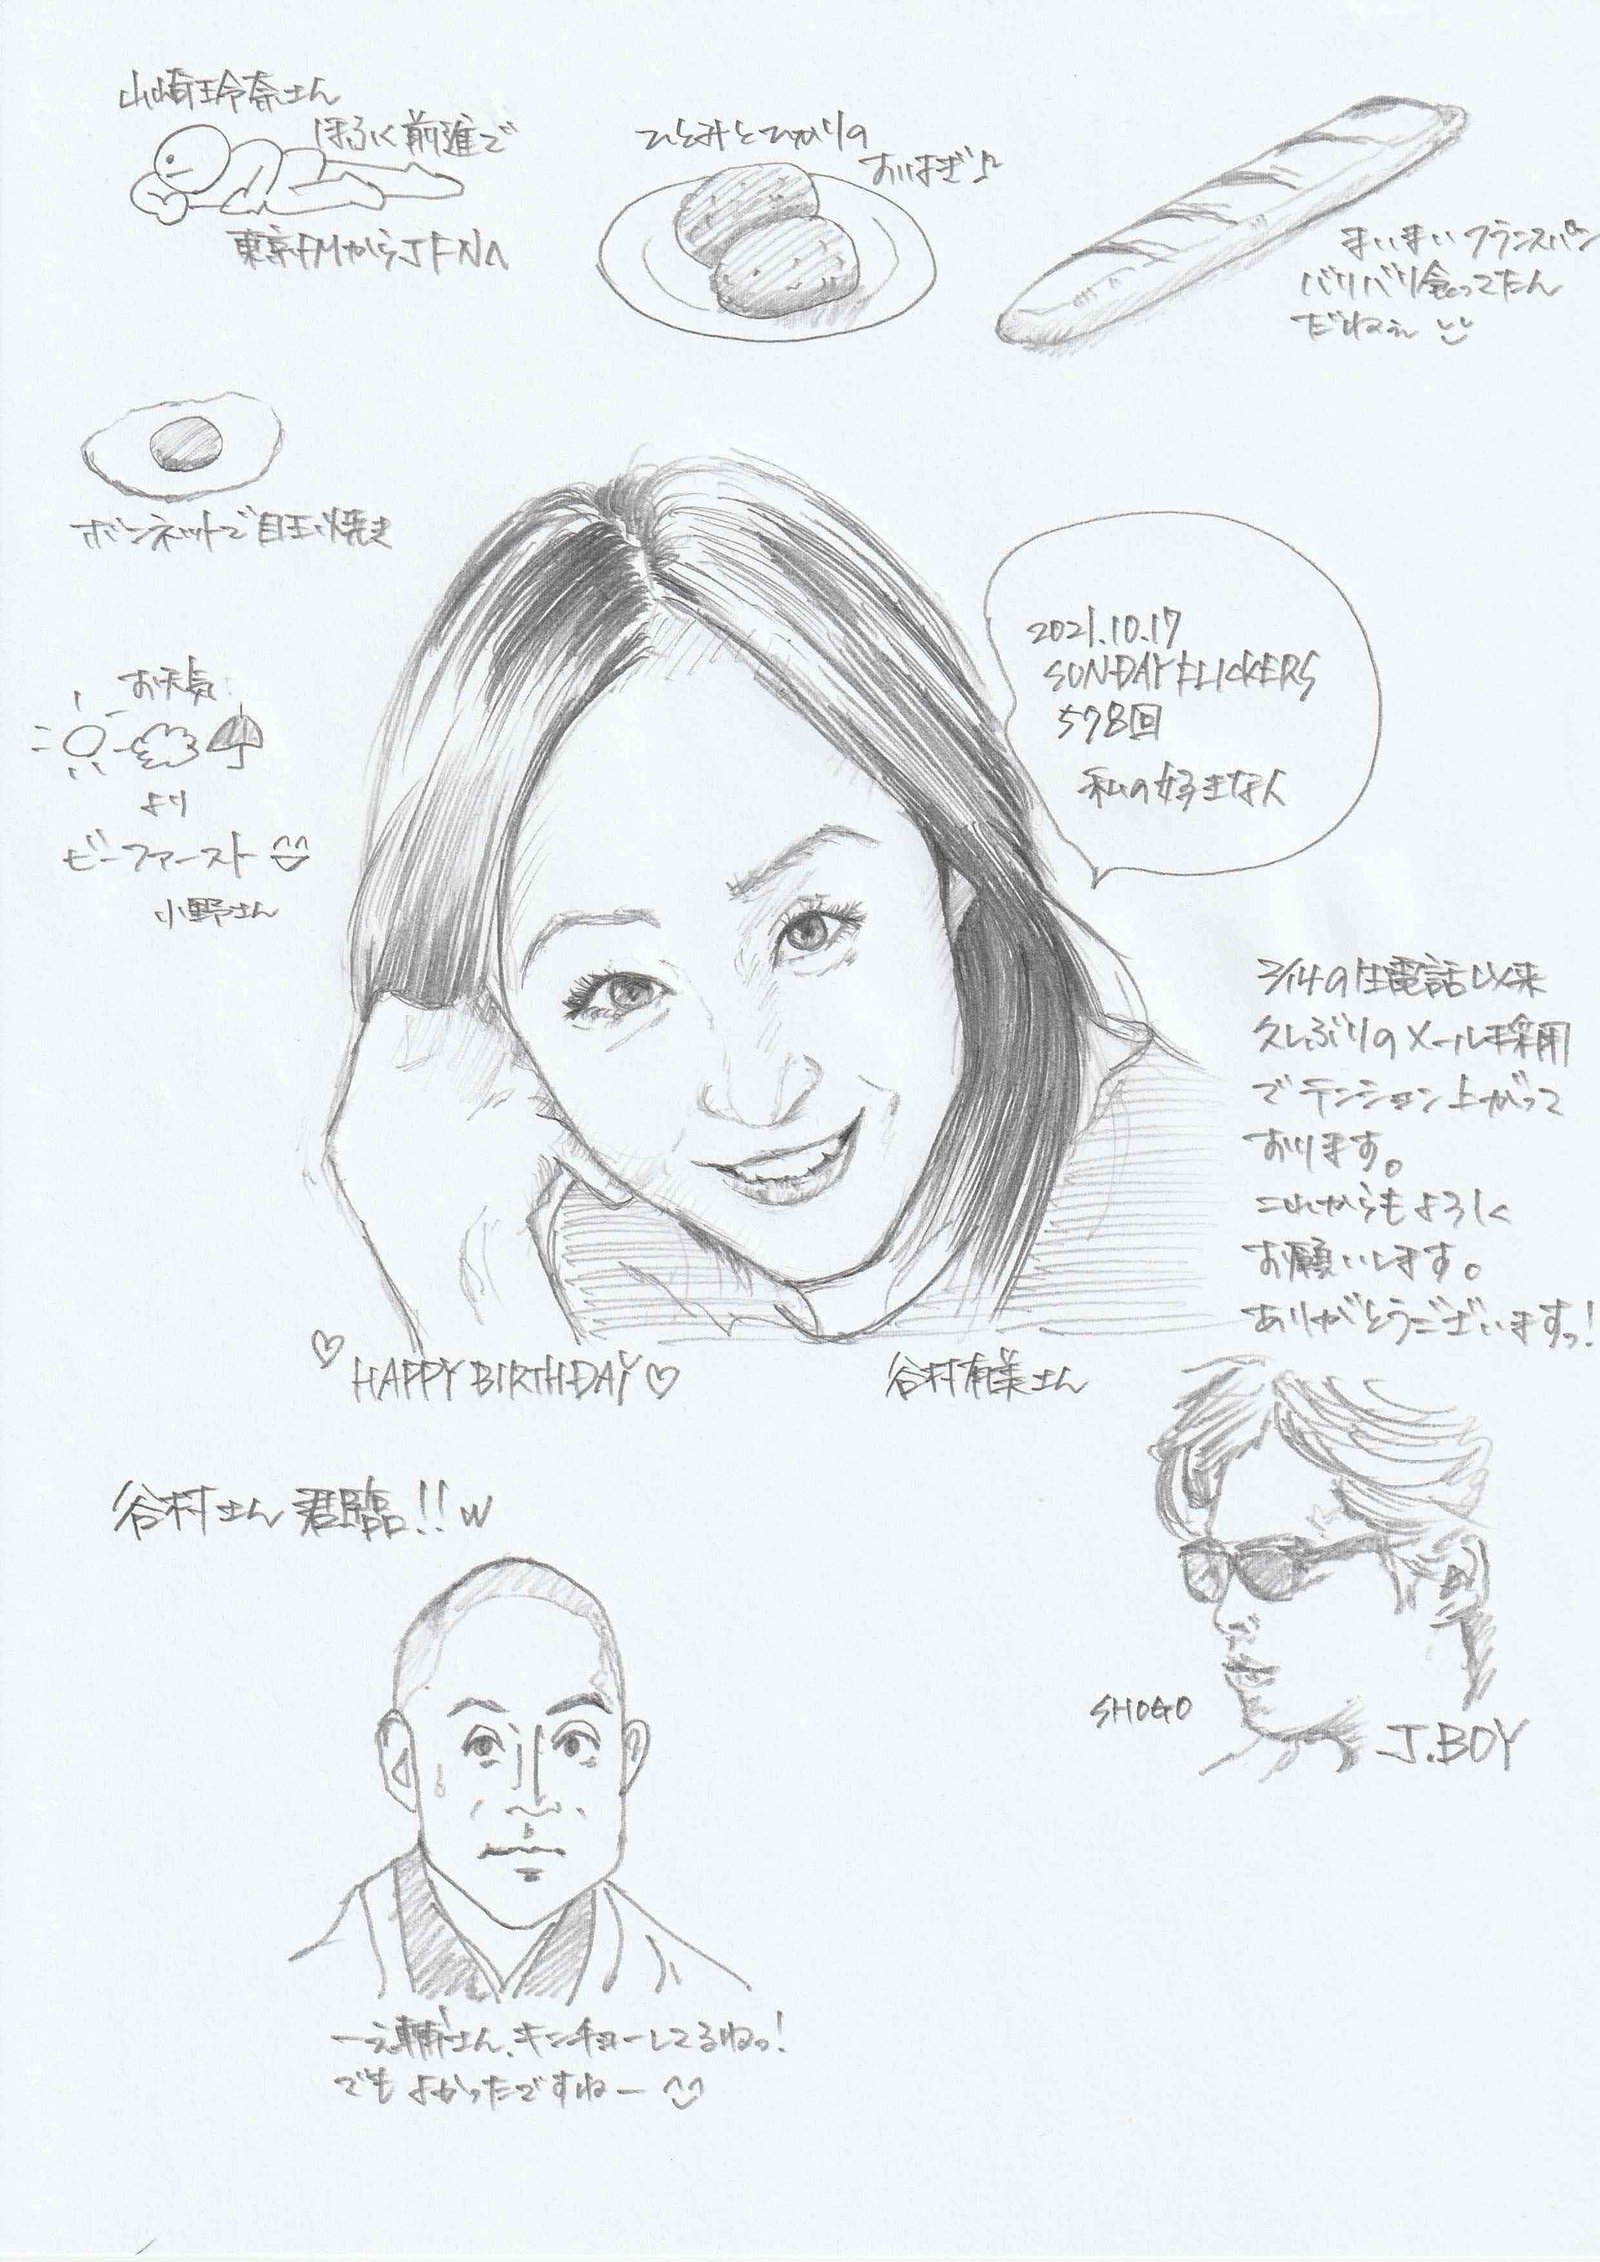 山崎玲奈さん
ほふく前進で
東京FMからJFNへ
ひとみとひかりの
おはぎ♪
まいまいフランスパン
バリバリ食ってたん
だねぇ
ボンネットで目玉焼き
お天気
より
ビーファースト
小野さん
2021.10.17
SUNDAY FLICKERS
578回
私の好きな人
3/14の生電話以来
久しぶりのメール採用
でテンション上がって
おります。
これからもよろしく
お願いします。
ありがとうございますっ!
♡HAPPY BIRTHDAY♡
谷村有美さん
谷村さん 君臨!!w
SHOGO
J.BOY
一之輔さん、キンチョーしてるねっ!
でもよかったですねー